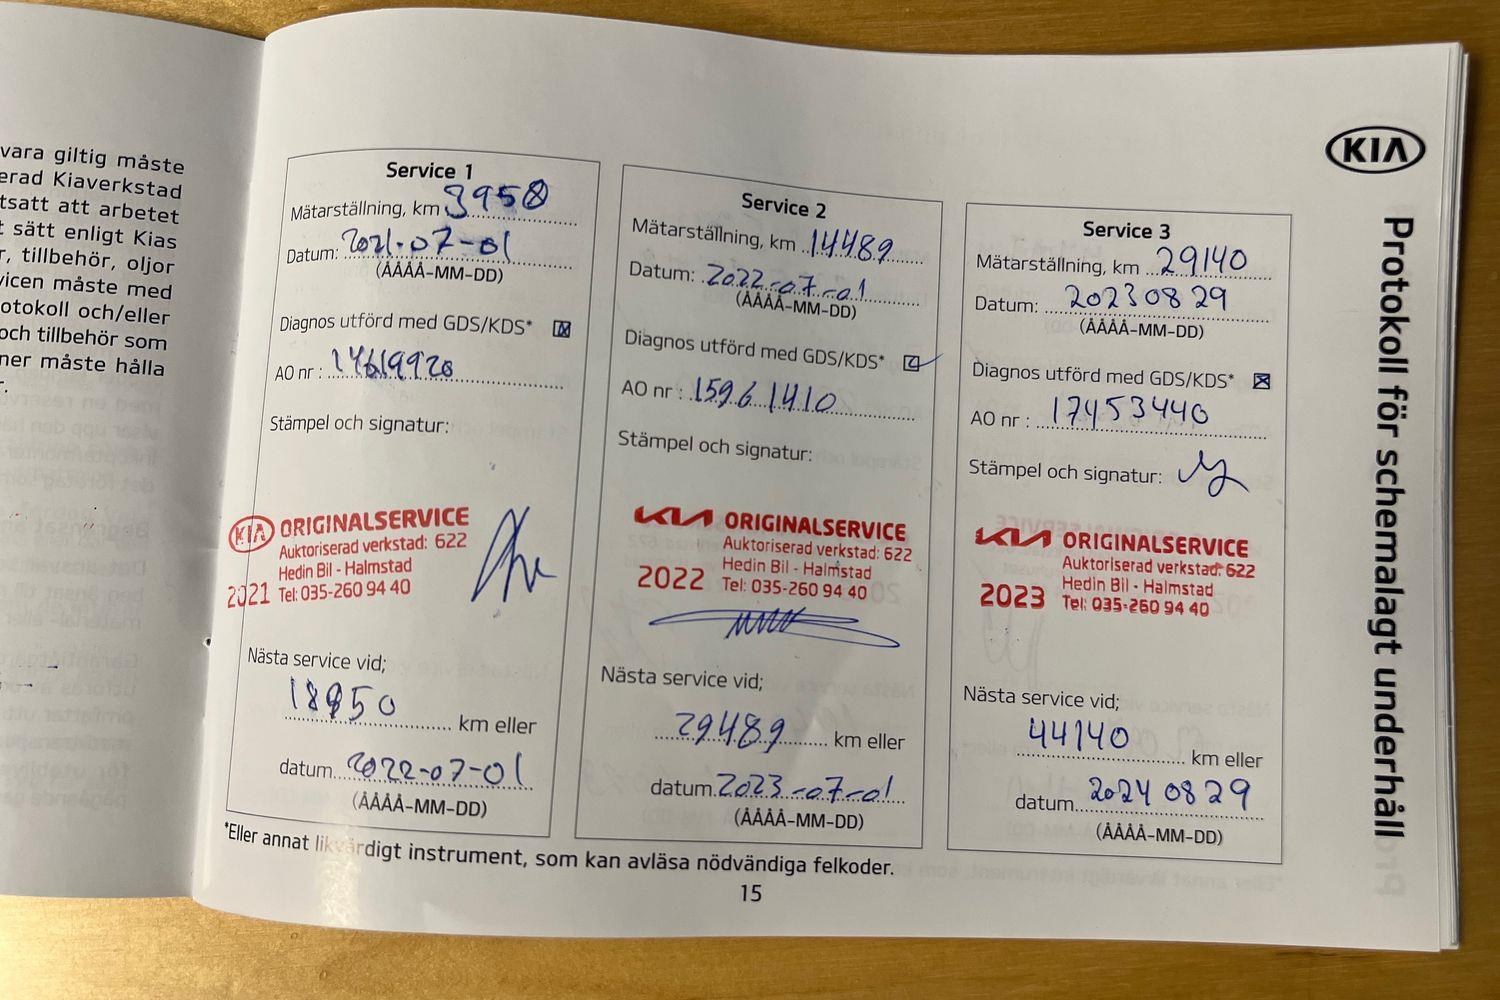 vara giltig måste
erad Kiaverkstad
tsatt att arbetet
t sätt enligt Kias
r, tillbehör, oljor
vicen måste med
otokoll och/eller
och tillbehör som
ner måste hålla
r.
KIA
Protokoll för schemalagt underhåll
Service 1
Mätarställning, km 3958
Datum: 2021-07-01
(ÅÅÅÅ-MM-DD)
Diagnos utförd med GDS/KDS*
AO nr : 14619920
Stämpel och signatur:
KIA ORIGINALSERVICE
Auktoriserad verkstad: 622
Hedin Bil - Halmstad
2021 Tel: 035-260 94 40
Nästa service vid;
18950 km eller
datum 2022-07-01
(ÅÅÅÅ-MM-DD)
Service 2
Mätarställning, km 14489
Datum: 2022-07-01
(ÅÅÅÅ-MM-DD)
Diagnos utförd med GDS/KDS*
AO nr : 15961410
Stämpel och signatur:
KIA ORIGINALSERVICE
Auktoriserad verkstad: 622
Hedin Bil - Halmstad
2022 Tel: 035-260 94 40
Nästa service vid;
29489 km eller
datum 2023-07-01
(ÅÅÅÅ-MM-DD)
Service 3
Mätarställning, km 29140
Datum: 20230829
(ÅÅÅÅ-MM-DD)
Diagnos utförd med GDS/KDS*
AO nr : 17453440
Stämpel och signatur:
KIA ORIGINALSERVICE
Auktoriserad verkstad: 622
Hedin Bil - Halmstad
2023 Tel: 035-260 94 40
Nästa service vid;
44140 km eller
datum 20240829
(ÅÅÅÅ-MM-DD)
*Eller annat likvärdigt instrument, som kan avläsa nödvändiga felkoder.
15